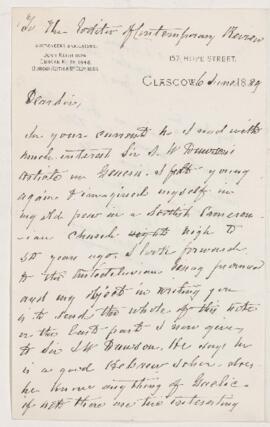 To The Editor of Contemporary Review
157, HOPE STREET,
GLASGOW, 6 June 1889
Dear Sir,
In your current no. I read with
much interest Sir J. W. Dawson's
article on Genesis. I felt young
again & imagined myself in
my old pew in a Scottish Cameron-
ian church nigh to
50 years ago. I look forward
to the essay promised
and my object in writing you
is to send the whole of this note
or the last part I now give
to Sir J W Dawson. He says he
is a good Hebrew scholar. does
he know anything of Gaelic.
if not there are two interesting